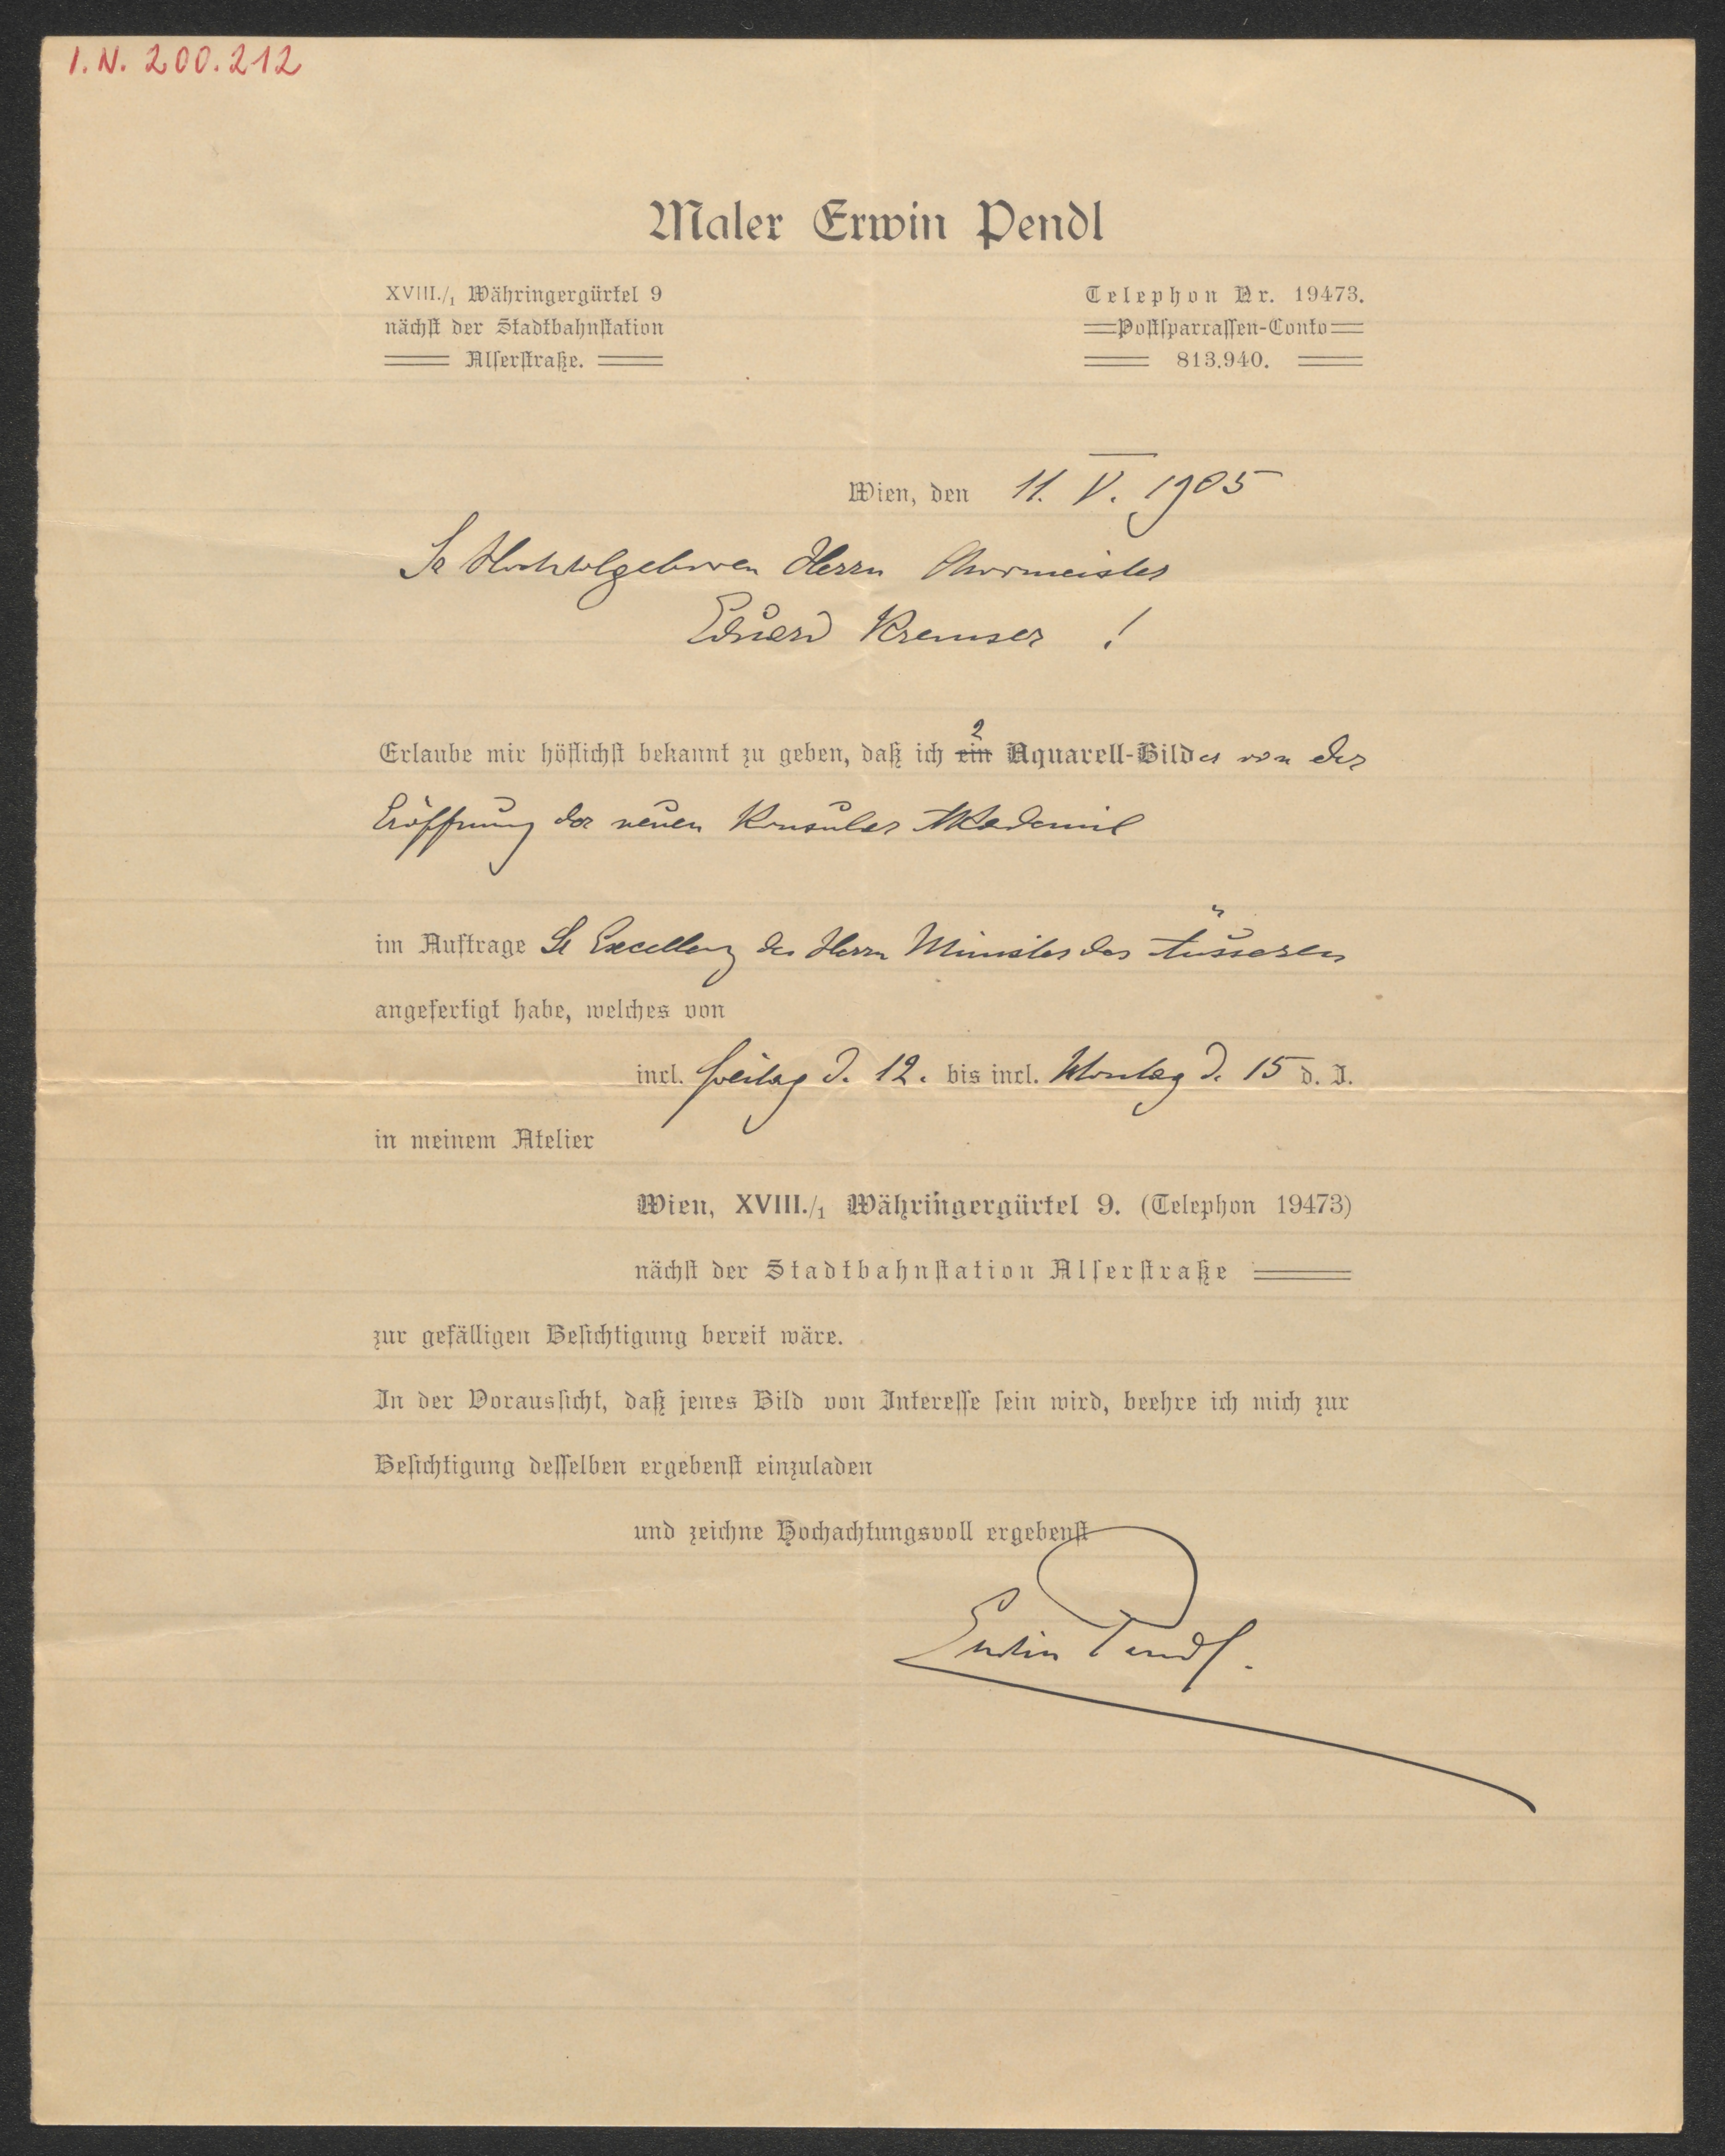 I. N. 200.212
Maler Erwin Pendl
XVIII./1 Währingergürtel 9
nächst der Stadtbahnstation
Alserstraße.
Telephon Nr. 19473.
Postsparcassen-Conto
813.940.
Wien, den 11. V. 1905
Sr Hochwolgeboren Herrn Chormeister
Eduard Kremser !
2
Erlaube mir höflichst bekannt zu geben, daß ich ein Aquarell-Bilder von der
Eröffnung der neuen Konsular Akademie
im Auftrage Sr Excellenz des Herrn Minister des Äusseren
angefertigt habe, welches von
incl. Freitag d. 12. bis incl. Montag d. 15 d. J.
in meinem Atelier
Wien, XVIII./1 Währingergürtel 9. (Telephon 19473)
nächst der Stadtbahnstation Alserstraße
zur gefälligen Besichtigung bereit wäre.
In der Voraussicht, daß jenes Bild von Interesse sein wird, beehre ich mich zur
Besichtigung desselben ergebenst einzuladen
und zeichne Hochachtungsvoll ergebenst
Erwin Pendl.